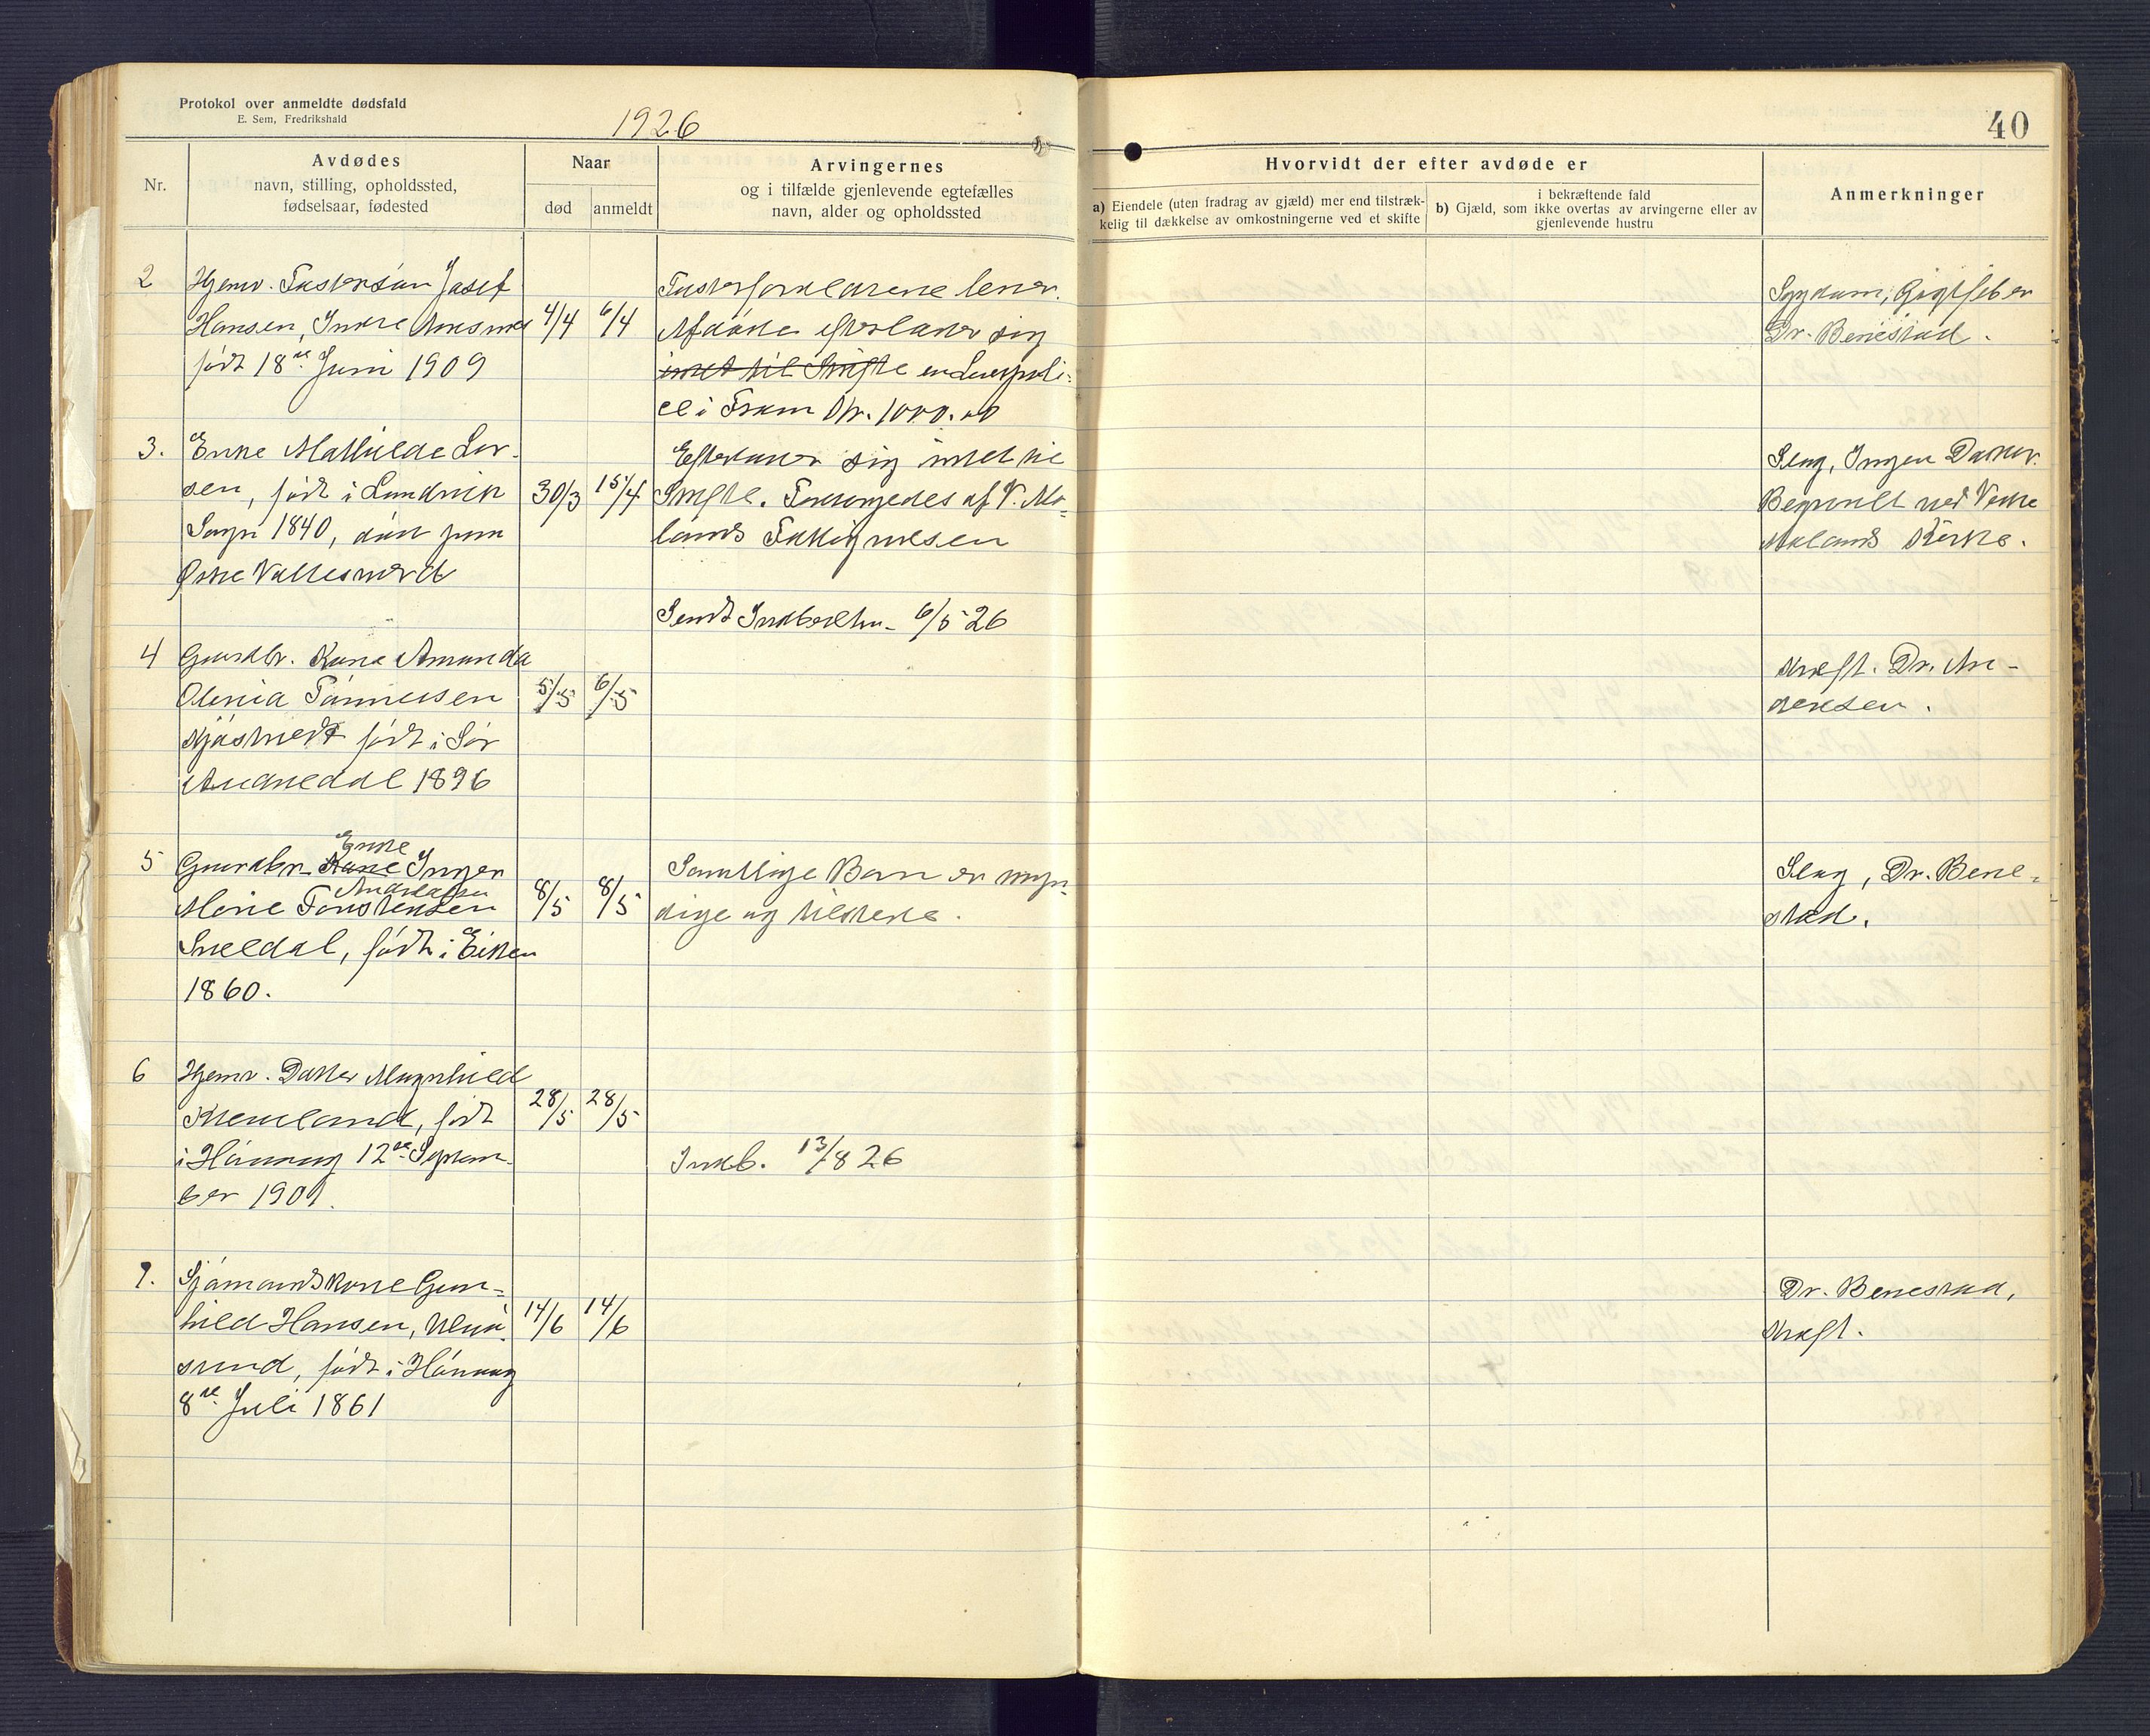 Protokol over anmeldte dødsfald
E. Sem, Fredrikshald
1926
40
Nr.
Avdødes
navn, stilling, opholdssted,
fødselsaar, fødested
Naar
død
anmeldt
Arvingernes
og i tilfælde gjenlevende egtefælles
navn, alder og opholdssted
Hvorvidt der efter avdøde er
a) Eiendele (uten fradrag av gjæld) mer end tilstræk-
kelig til dækkelse av omkostningerne ved et skifte
i bekræftende fald
b) Gjæld, som ikke overtas av arvingerne eller av
gjenlevende hustru
Anmerkninger
2
Hjemv. Fostersøn Josef
Hansen, Indre
født 18de Juni 1909
4/4
6/4
Fosterforeldrene lever.
Afdøde efterlader sig
intet til Skifte en Livspoli-
ce i Fram Kr. 1000.00
Sygdom, Gigtfeber
Dr. Benestad.
3.
Enke Mathilde Lar-
sen, født i Landvik
Sogn 1840, død paa
Østre Vallesverd
30/3
15/4
Efterlader sig intet til
Skifte. Forsørgedes af V. Mo-
lands Fattigvæsen
Slag, Ingen Doktor.
Begravet ved Vestre
Molands Kirke.
Sendt Indberetn. 6/5 26
4
Gaardbr. Kone Amanda
Olenia Tønnesen
født i Sør
Audnedal 1896
5/5
6/5
Kræft. Dr. An-
dersen.
5
Gaardbr. Kone Inger
Enke
Marie Torstensen
Andreasen
født i Eiken
1860.
8/5
8/5
Samtlige Børn er myn-
dige og tilstede.
Slag, Dr. Bene-
stad.
6
Hjemv. Datter Magnhild
født
i Høvaag 12te Septem-
ber 1901.
28/5
28/5
Indb. 13/8 26
7.
Sjømandskone Gun-
hild Hansen, Ulvø-
sund, født i Høvaag
8de Juli 1861
14/6
14/6
Dr. Benestad,
Kræft.